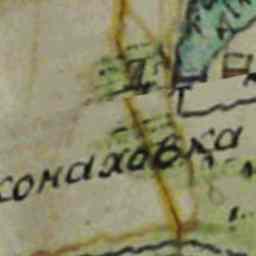 конаховка